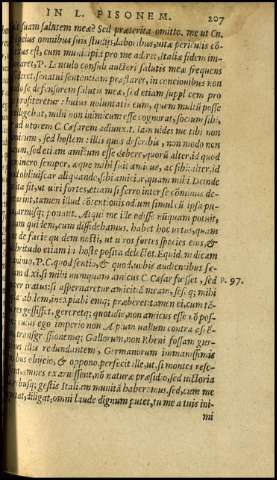 IN L. PISONEM. 207
suam salutem meã? Sed præterita omitto. me ut Cn.
omnibus suis studijs, laboribus, uitæ periculis cõ
est, cum municipia pro me adiret, Italiæ fidem im
P. Lentulo consuli auctori salutis meæ frequens
senatui sententiam præstaret, in concionibus non
se defensorem salutis meæ, sed etiam supplicem pro
profiteretur: huius uoluntatis eum, quem multũ posse
mihi non inimicum esse cognorat, socium sibi,
C. Cæsarem adiunxit. iam uides me tibi non
sed hostem: illis quos describis, non modo non
sed etiam amicum esse debere, quorũ alter, id quod
meminero semper, æque mihi fuit amicus, ac sibi: alter, id
obliuiscar aliquando, sibi amicior, quam mihi. Deinde
sit, ut uiri fortes, etiam si ferro inter se cõminus de-
tamen illud cõtentionis odium simul cũ ipsa pu-
ponant. Atqui me ille odisse nũquam potuit,
quidem, cum dissidebamus. habet hoc uirtus, quam
de facie qui dem nosti, ut uiros fortes species eius, &
pulchritudo etiam in hoste posita delectet. Equidem dicam
P. C. quod sentio, & quod uobis audientibus sæ-
dixi. si mihi numquam amicus C. Cæsar fuisset, sed p. 97.
iratus: si aspernaretur amicitiã meam, seseq; mihi
inexpiabilemq; præberet: tamen ei, cum tãtas
gessisset, gereretq; quotidie, non amicus esse nõ pos-
ego imperio non Alpium uallum contra ascẽ-
transgressionemq; Gallorum, non Rheni fossam gur-
illis redundantem, Germanorum immanissimis
obijcio, & oppono. perfecit ille, ut, si montes rese-
amnes exaruissent, nõ naturæ præsidio, sed uictoria
gestis Italiam munitã haberemus. sed, cum me
diligat, omni laude dignum putet, tu me a tuis ini-
mi